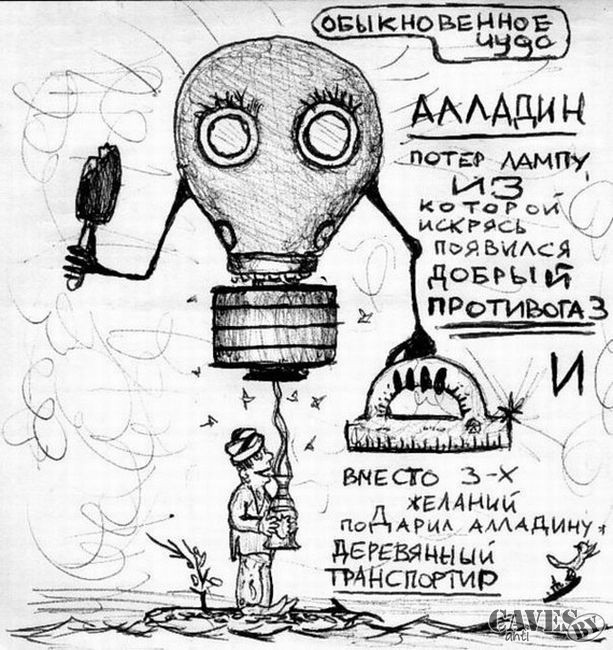 ОБЫКНОВЕННОЕ
чудо
АЛЛАДИН
ПОТЕР ЛАМПУ,
ИЗ
КОТОРОЙ
ИСКРЯСЬ
ПОЯВИЛСЯ
ДОБРЫЙ
ПРОТИВОГАЗ
И
ВМЕСТО 3-Х
ЖЕЛАНИЙ
ПОДАРИЛ АЛЛАДИНУ
ДЕРЕВЯННЫЙ
ТРАНСПОРТИР
CAVES
anti
BY